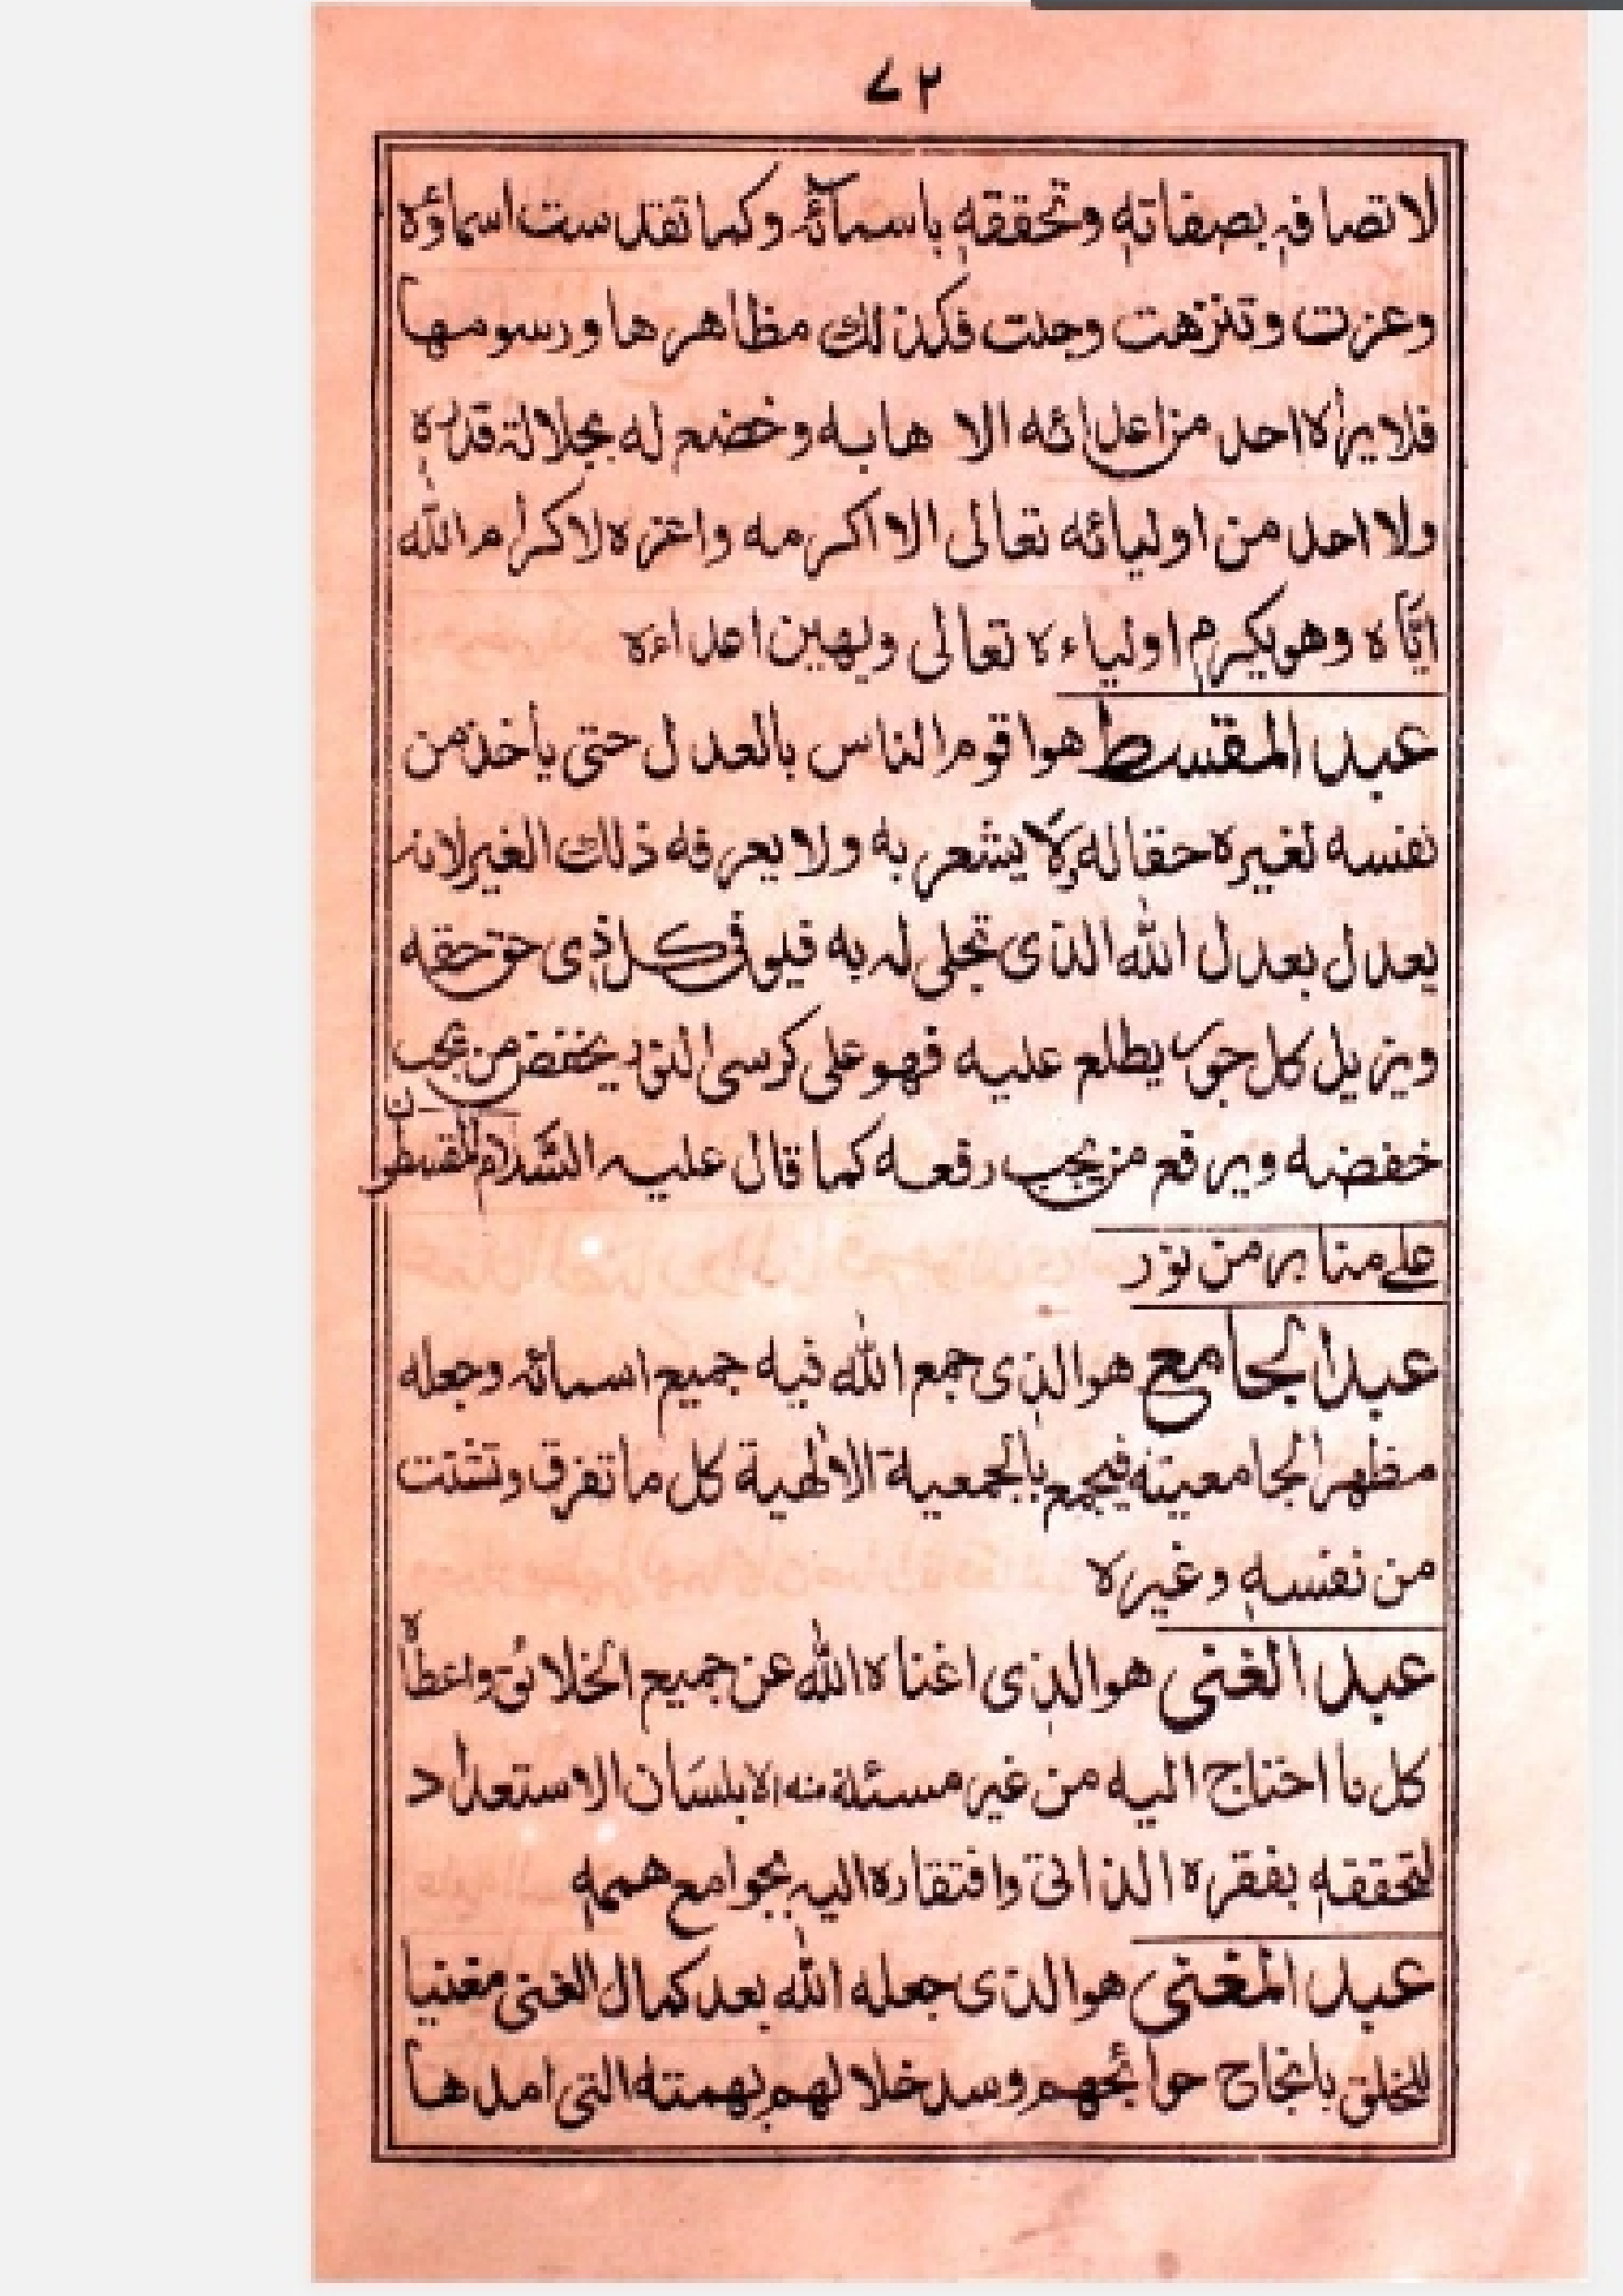 ٧٢
لاتصافہٖ بصفاتہٖ وتحققہٖ باسمآئہ وكما تقدست اسماؤه
وعزت وتنزهت وجلت فكذلك مظاهرها ورسومها
فلا يراه احد من اعدائه الا هابه وخضع له بجلالة قدرهٖ
ولا احد من اوليائه تعالى الا اكرمه واعزه لاكرام الله
ايّاه وهو يكرم اولياءه تعالى ويهين اعداءه
عبد المقسط هو اقوم الناس بالعدل حتى يأخذ من
نفسه لغيره حقا له ولا يشعر به ولا يعرفه ذلك الغير لانہ
يعدل بعدل الله الذى تجلى لہ به فيوفى كل ذى حق حقه
ويزيل كل جور يطلع عليه فهو على كرسى النور يخفض من يجب
خفضه ويرفع من يجب رفعه كما قال عليہ السّلام المقسطون
علے منابر من نور
عبد الجامع هو الذى جمع الله فيه جميع اسمائہ وجعله
مظهر الجامعيته فيجمع بالجمعية الالهية كل ما تفرق وتشتت
من نفسهٖ وغيره
عبد الغنى هو الذى اغناه الله عن جميع الخلائق واعطاه
كل ما احتاج اليه من غير مسئلة منه الا بلسَان الاستعداد
لتحققهٖ بفقره الذاتى وافتقاره اليہ بجوامع هممهٖ
عبد المغنى هو الذى جعله الله بعد كمال الغنى مغنيا
للخلق بانجاح حوائجهم وسد خلالهم بهمته التى امدها